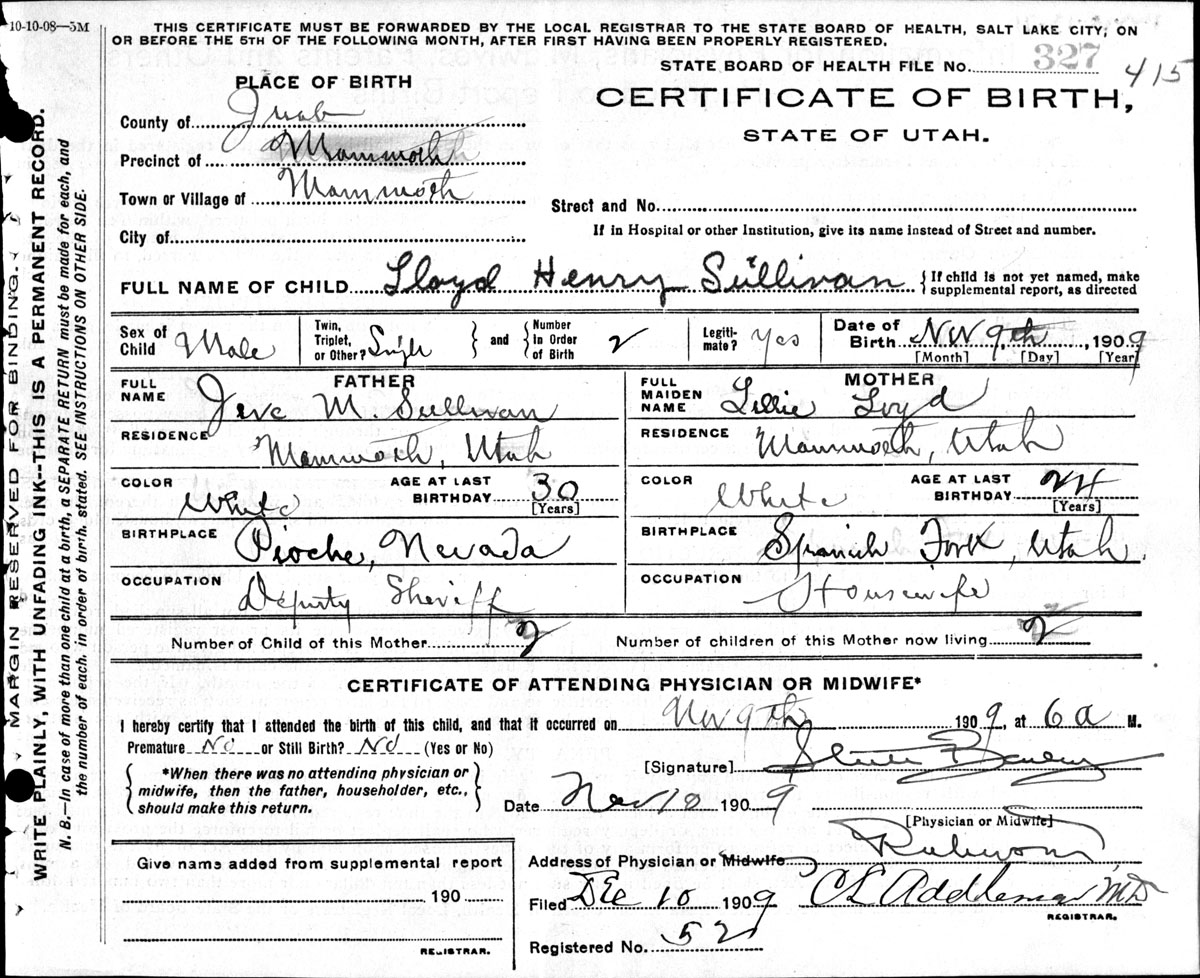 10-10-08—5M
THIS CERTIFICATE MUST BE FORWARDED BY THE LOCAL REGISTRAR TO THE STATE BOARD OF HEALTH, SALT LAKE CITY, ON
OR BEFORE THE 5TH OF THE FOLLOWING MONTH, AFTER FIRST HAVING BEEN PROPERLY REGISTERED.
STATE BOARD OF HEALTH FILE No. 327 415
PLACE OF BIRTH
CERTIFICATE OF BIRTH,
STATE OF UTAH.
County of Juab
Precinct of Mammoth
Town or Village of Mammoth
Street and No.
City of
If in Hospital or other Institution, give its name instead of Street and number.
FULL NAME OF CHILD Lloyd Henry Sullivan { If child is not yet named, make supplemental report, as directed
Sex of Child Male Twin, Triplet, or Other? Single } and { Number In Order of Birth 2 Legitimate? Yes Date of Birth Nov 9th, 1909
[Month] [Day] [Year]
FATHER
FULL NAME Jere M. Sullivan
MOTHER
FULL MAIDEN NAME Lillie Loyd
RESIDENCE Mammoth, Utah
RESIDENCE Mammoth, Utah
COLOR White AGE AT LAST BIRTHDAY 30 [Years]
COLOR White AGE AT LAST BIRTHDAY 24 [Years]
BIRTHPLACE Pioche, Nevada
BIRTHPLACE Spanish Fork, Utah.
OCCUPATION Deputy Sheriff
OCCUPATION Housewife
Number of Child of this Mother 2 Number of children of this Mother now living 2
CERTIFICATE OF ATTENDING PHYSICIAN OR MIDWIFE*
I hereby certify that I attended the birth of this child, and that it occurred on Nov 9th 1909, at 6 a M.
Premature No or Still Birth? No (Yes or No)
[Signature]
{ *When there was no attending physician or midwife, then the father, householder, etc., should make this return. }
Date Nov 10 1909
[Physician or Midwife]
Address of Physician or Midwife
Give name added from supplemental report
190
Filed Dec 10 1909 C E Addleman MD
REGISTRAR.
REGISTRAR.
Registered No. 52
MARGIN RESERVED FOR BINDING.
WRITE PLAINLY, WITH UNFADING INK--THIS IS A PERMANENT RECORD.
N. B.—In case of more than one child at a birth, a SEPARATE RETURN must be made for each, and
the number of each, in order of birth, stated. SEE INSTRUCTIONS ON OTHER SIDE.